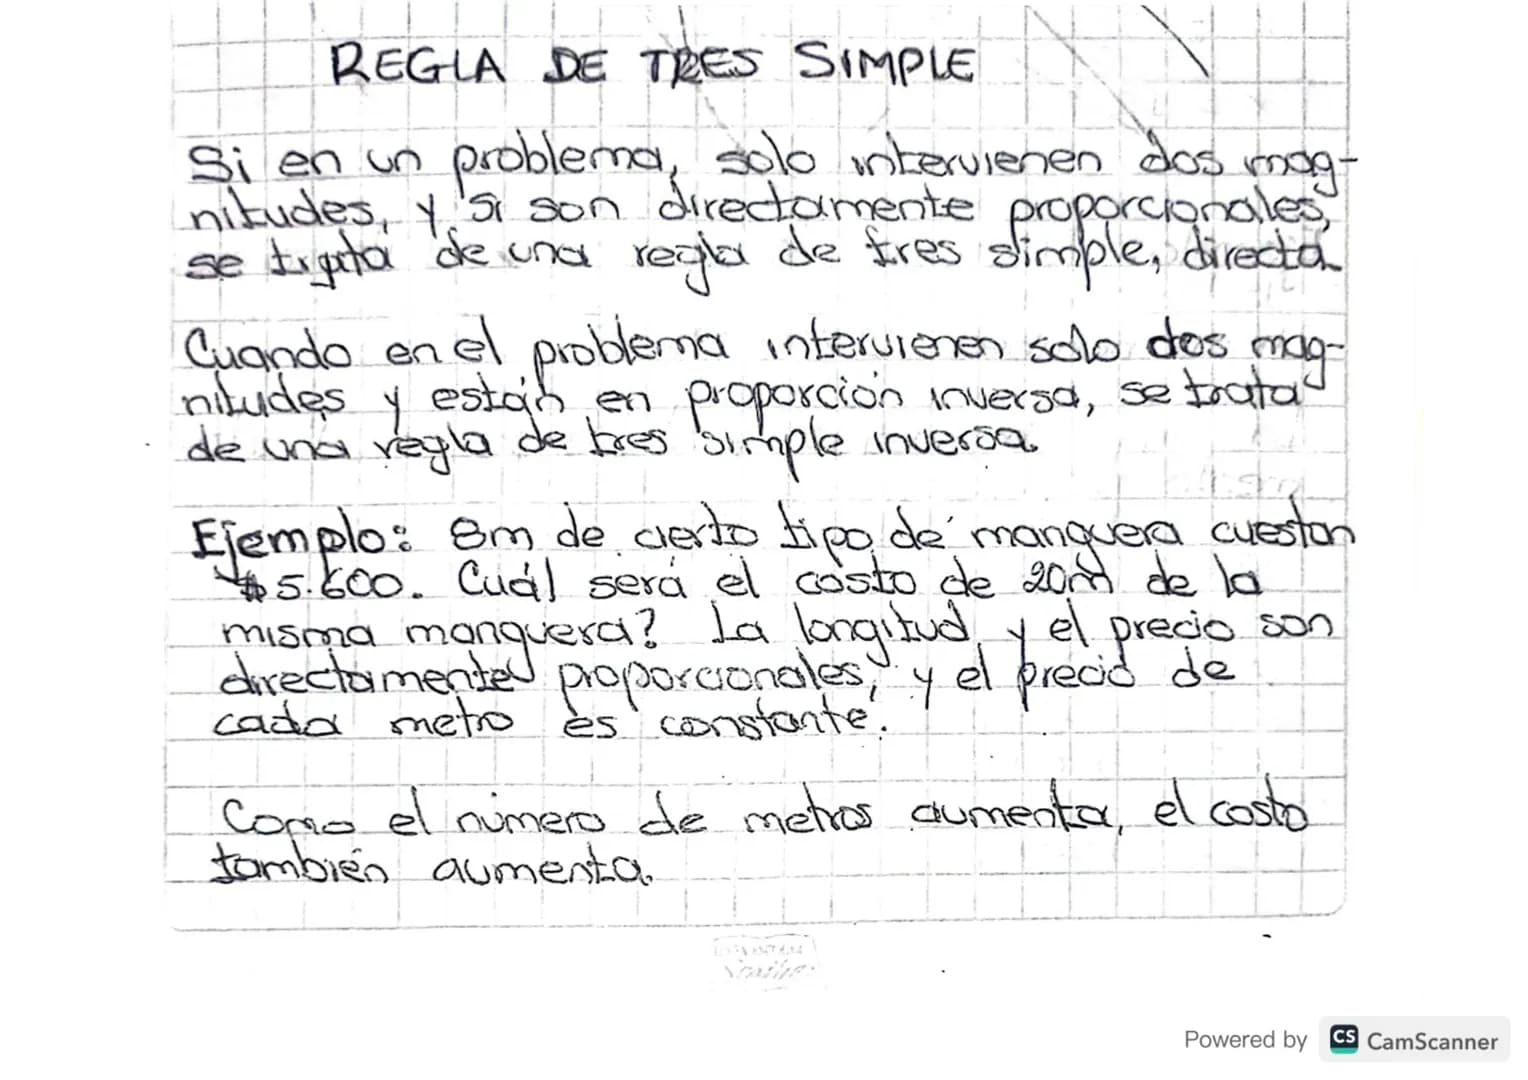 REGLA DE TRES SIMPLE
Si en un problema, solo intervienen dos mag-
nitudes, y si son directamente proporcionales,
se trata de una regla de tres simple, directa
Cuando en el problema intervienen solo dos mag-
nitudes y están en proporción inversa, se trata
de una regla de tres simple inversa.
Ejemplo: 8m de cierto tipo de manguera cuestan
$5.600. Cuál será el costo de 20m de la
misma manguera? La longitud y el precio son
directamente proporcionales, y el precio de
cada metro es constante.
Como el número de metros aumenta, el costo
también aumenta.
Powered by CS CamScanner